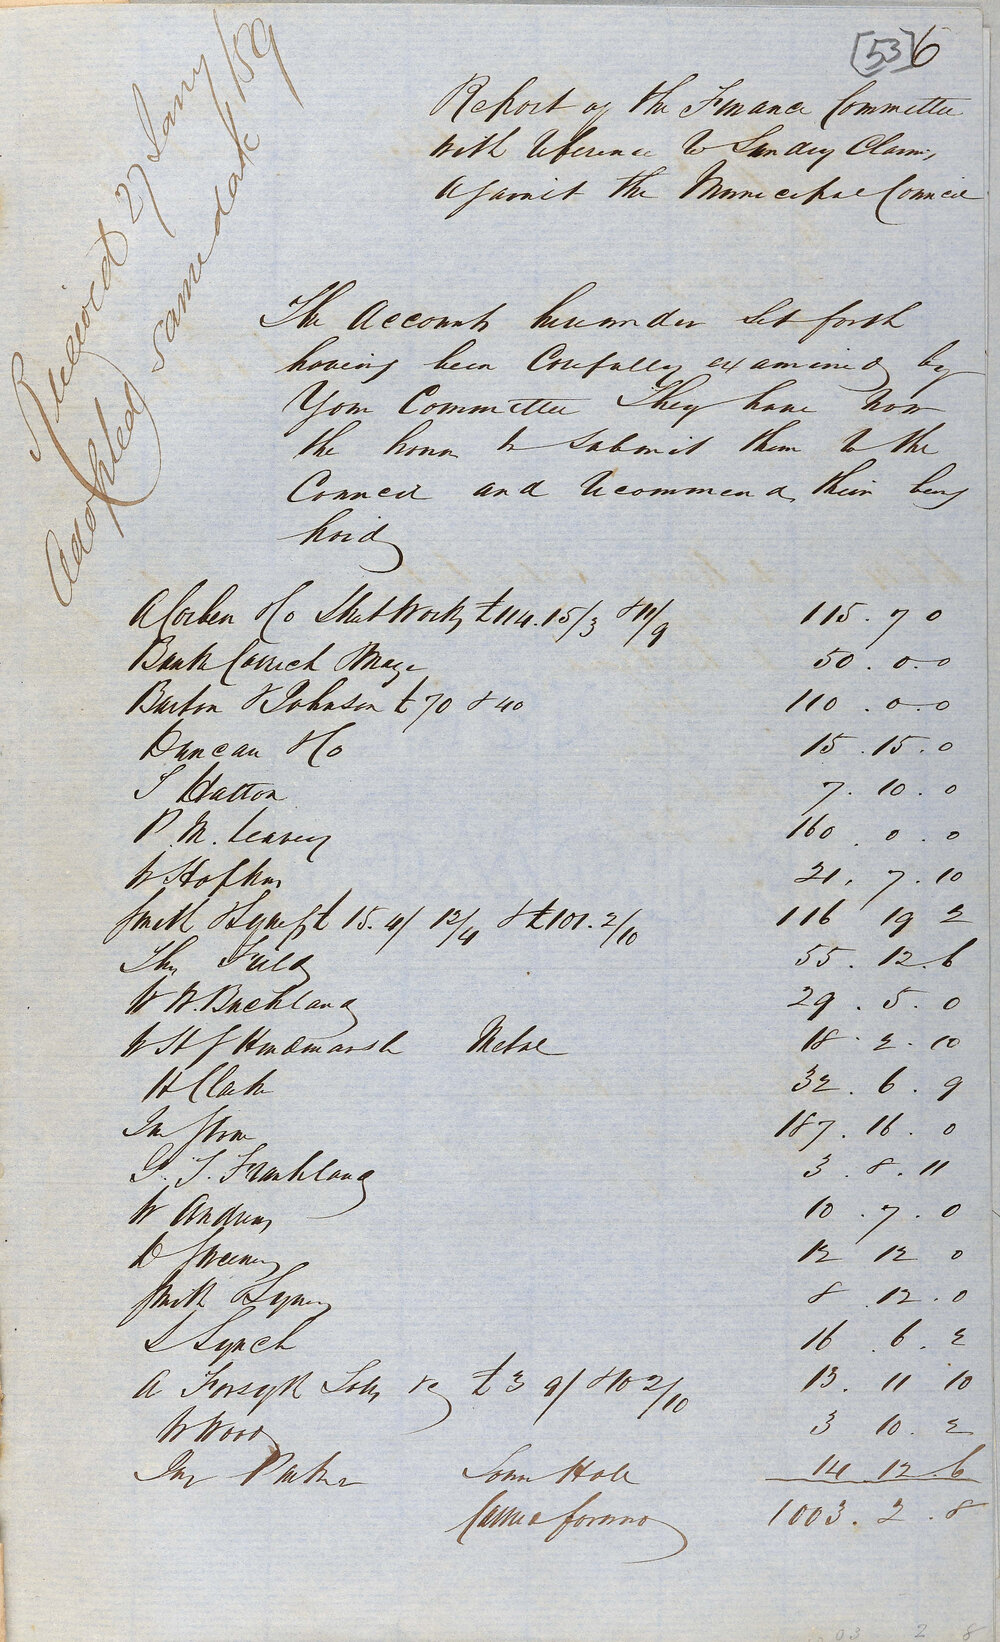 [53] 6
Report of the Finance Committee
with reference to Sundry Claims
against the Municipal Council
Received 27 Jany /59
Adopted same date
The Accounts hereunder set forth
having been Carefully examined by
Your Committee They have now
the honor to submit them to the
Council and recommend their being
paid
A Corben &Co Street Works £114.15/3 & 11/9 115. 7 0
Bank Couch 50. 0. 0
Burton & Johnson £70 & 40 110. 0. 0
Duncan &Co 15. 15. 0
T Hatton 7. 10. 0
P. M. Leavery 160. 0. 0
W Hopkins 21. 7. 10
Smith & £ 15. 12/4 & £101. 2/10 116 19 2
Thos Field 55. 12. 6
W W. Buckland 29. 5. 0
W H J Hindmarsh Metal 18. 2. 10
H Clark 32. 6. 9
187. 16. 0
G. T. Frankland 3. 8. 11
W Andrews 10. 7. 0
D Sweeney 12 12 0
Smith & 8. 12. 0
S Lynch 16. 6. 2
A Forsyth £3 9/ & 10 2/10 13. 11 10
W Wood 3 10. 2
Jas Parker Town Hall 14 12. 6
Carried forward 1003. 2. 8
03 2 8